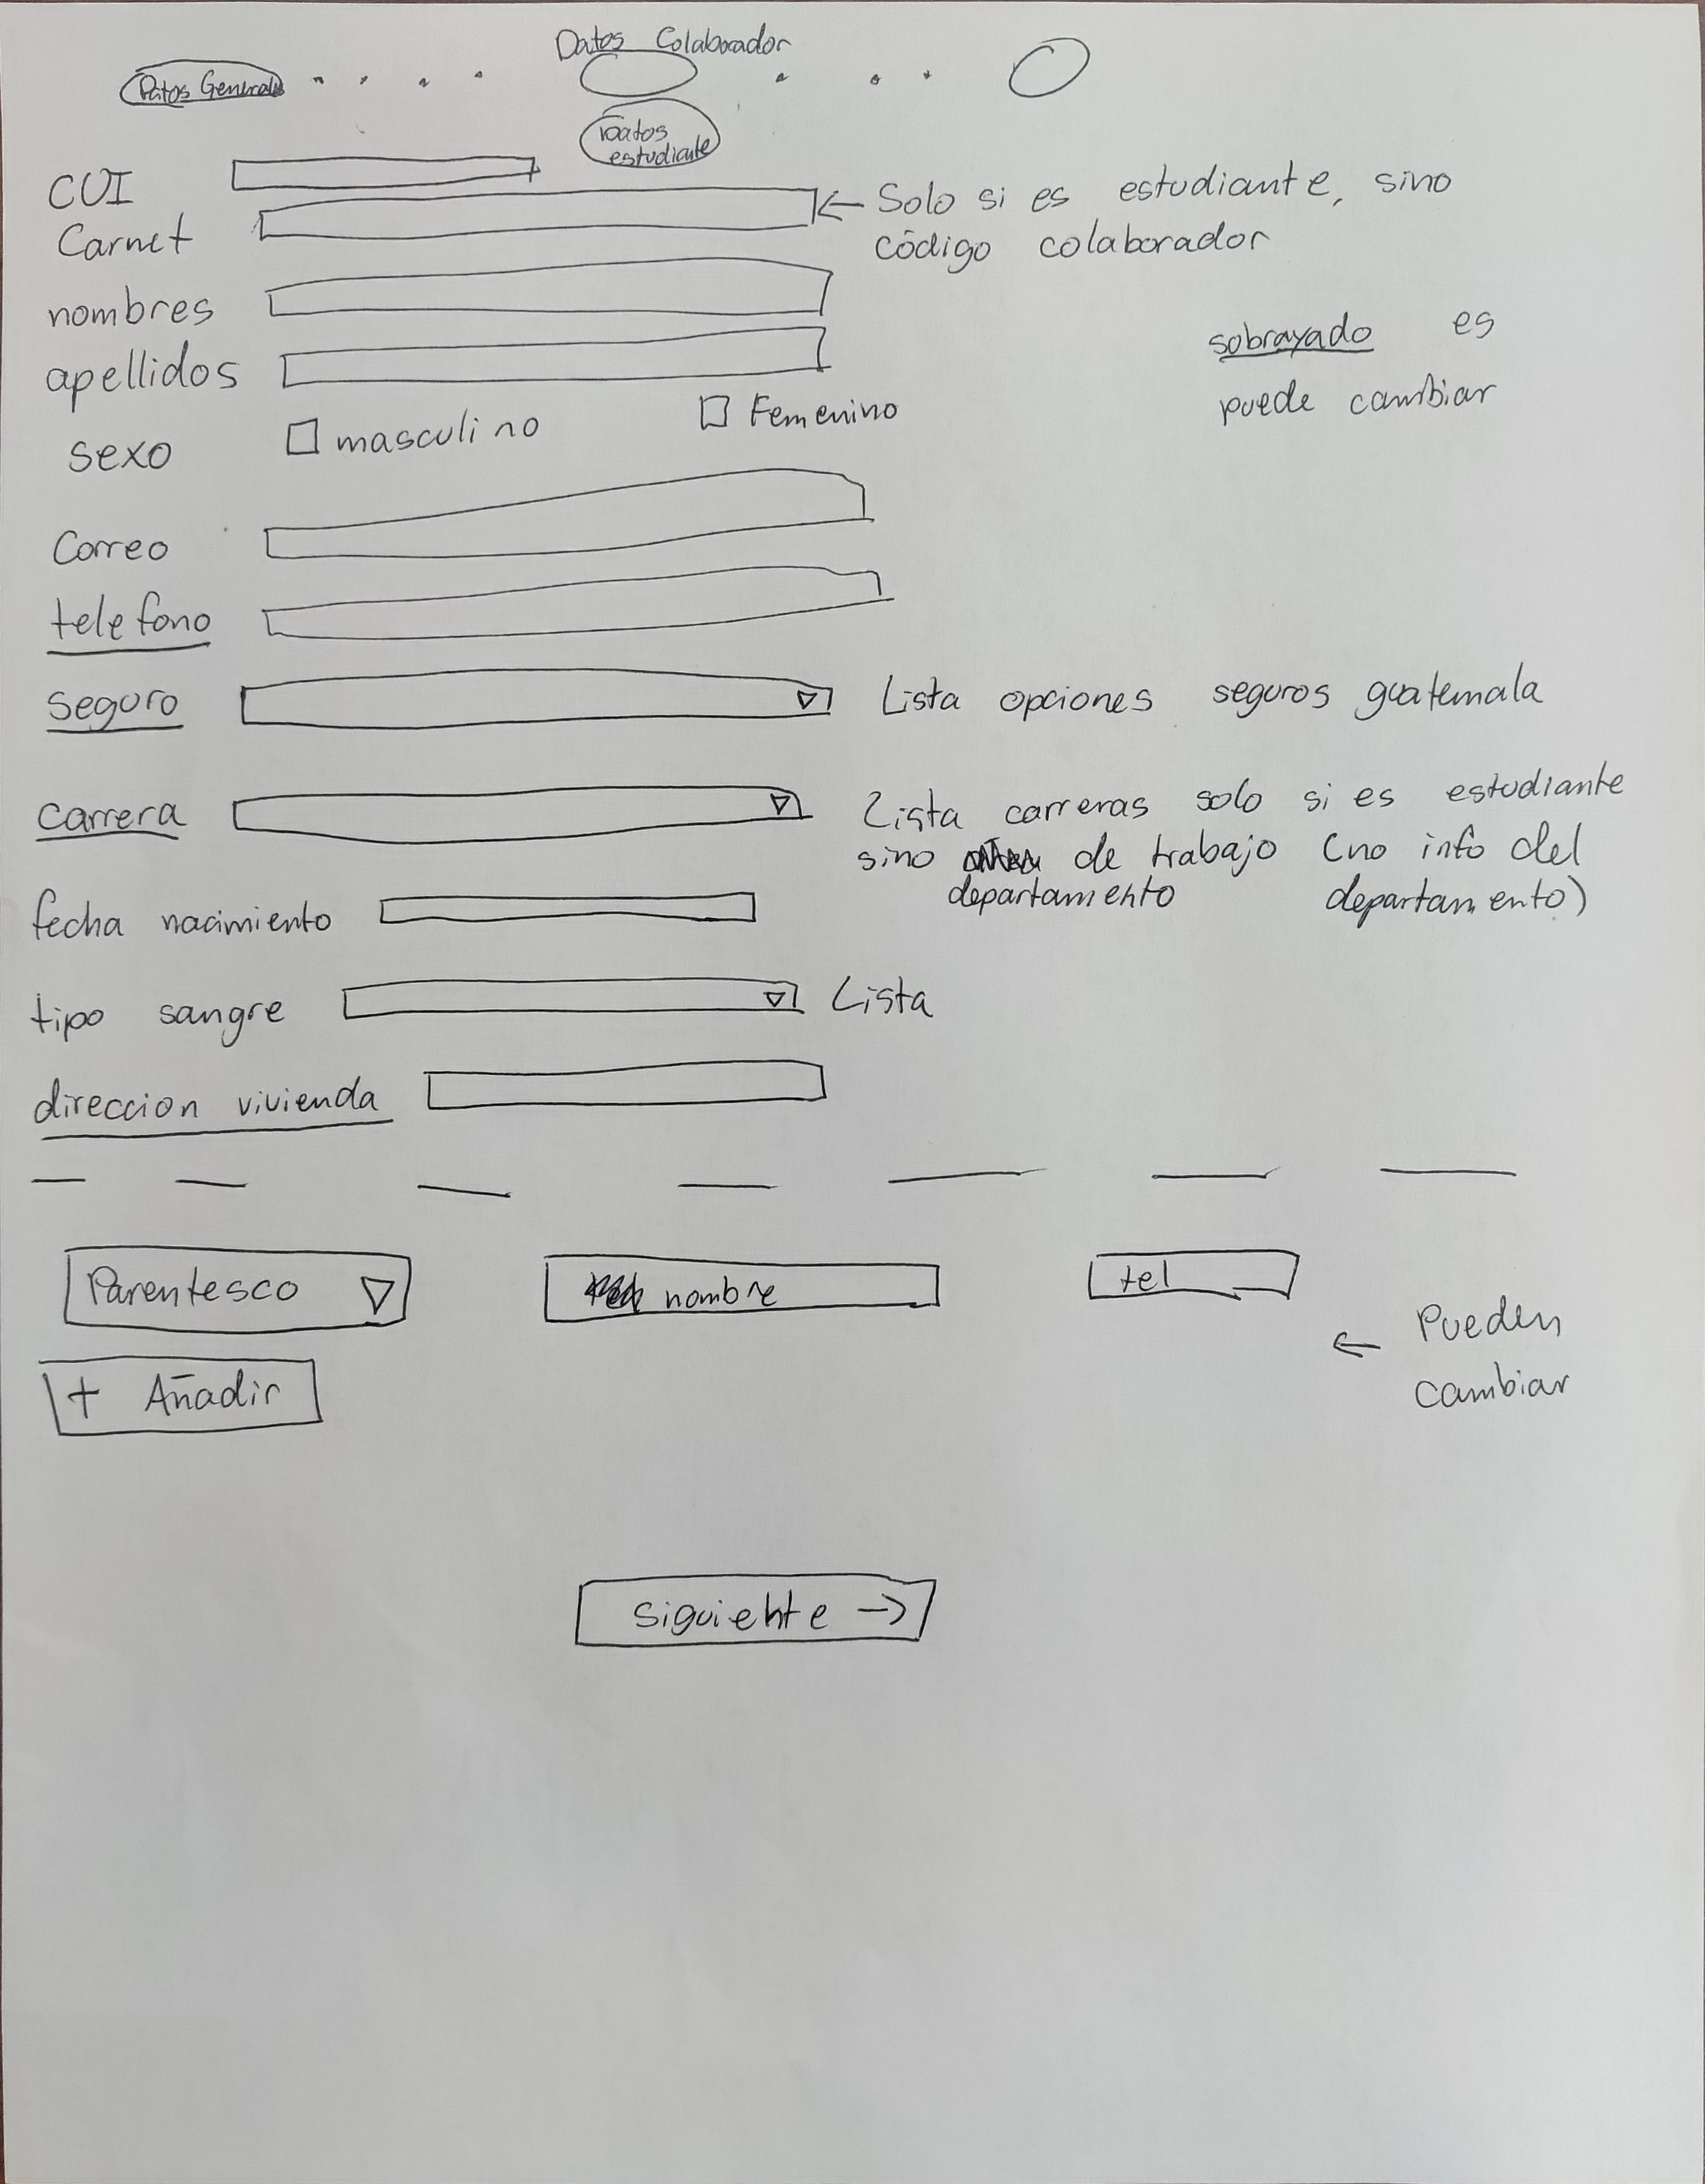 Datos Colaborador
Datos Generales
Datos
estudiante
CUI
Carnet
← Solo si es estudiante, sino
código colaborador
nombres
sobrayado es
puede cambiar
apellidos
sexo
masculino
Femenino
Correo
telefono
seguro
Lista opciones seguros guatemala
carrera
Lista carreras solo si es estudiante
sino de trabajo (no info del
departamento departamento)
fecha nacimiento
tipo sangre
Lista
direccion vivienda
Parentesco
nombre
tel
← Pueden
cambiar
+ Añadir
Siguiente →